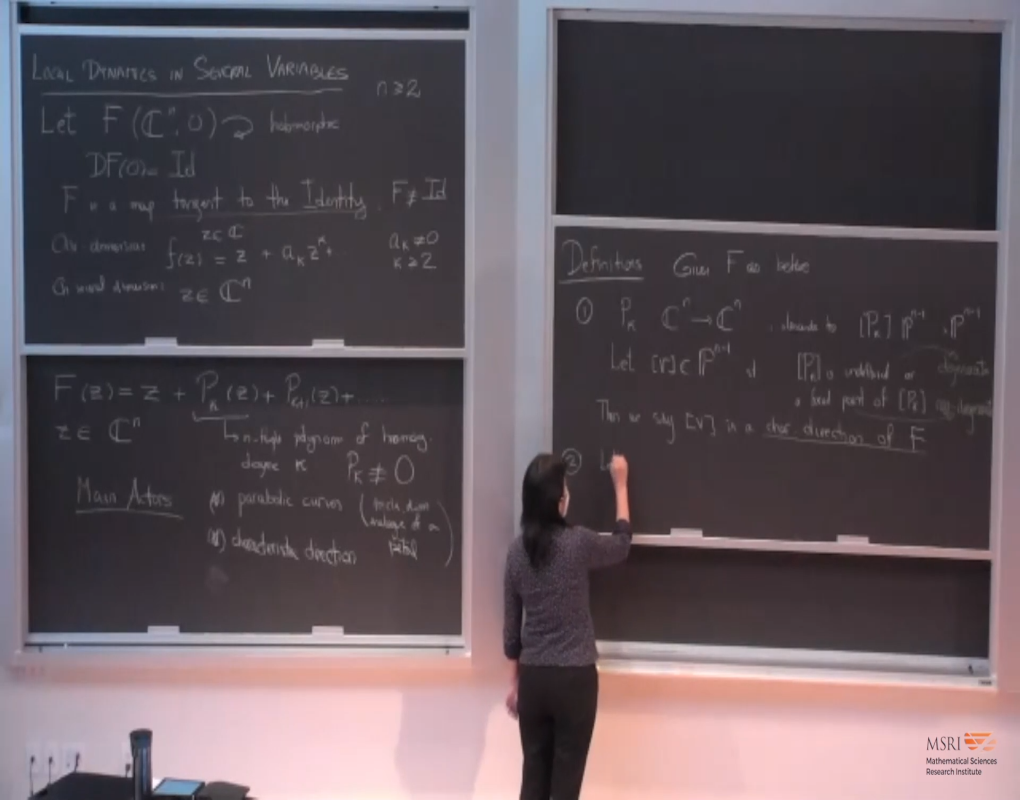 LOCAL DYNAMICS IN SEVERAL VARIABLES
n ≥ 2
Let F (ℂⁿ, 0) ↩ holomorphic
DF(0) = Id
F is a map tangent to the Identity, F ≢ Id
z ∈ ℂ
f(z) = z + a_κ z^κ + ..
a_κ ≠ 0
κ ≥ 2
z ∈ ℂⁿ
F(z) = z + P_κ(z) + P_{κ+1}(z) + ....
z ∈ ℂⁿ
↳ n-tuple polynom of homog.
degree κ P_κ ≢ 0
Main Actors
(i) parabolic curves
analogue of a petal
(ii) characteristic direction
Definitions Given F as before
① P_κ ℂⁿ → ℂⁿ, descends to [P_κ] ℙⁿ⁻¹ ℙⁿ⁻¹
Let [v] ∈ ℙⁿ⁻¹ st [P_κ] is undefined or degenerate
a fixed point of [P_κ]
Then we say [v] is a char. direction of F
②
MSRI
Mathematical Sciences
Research Institute